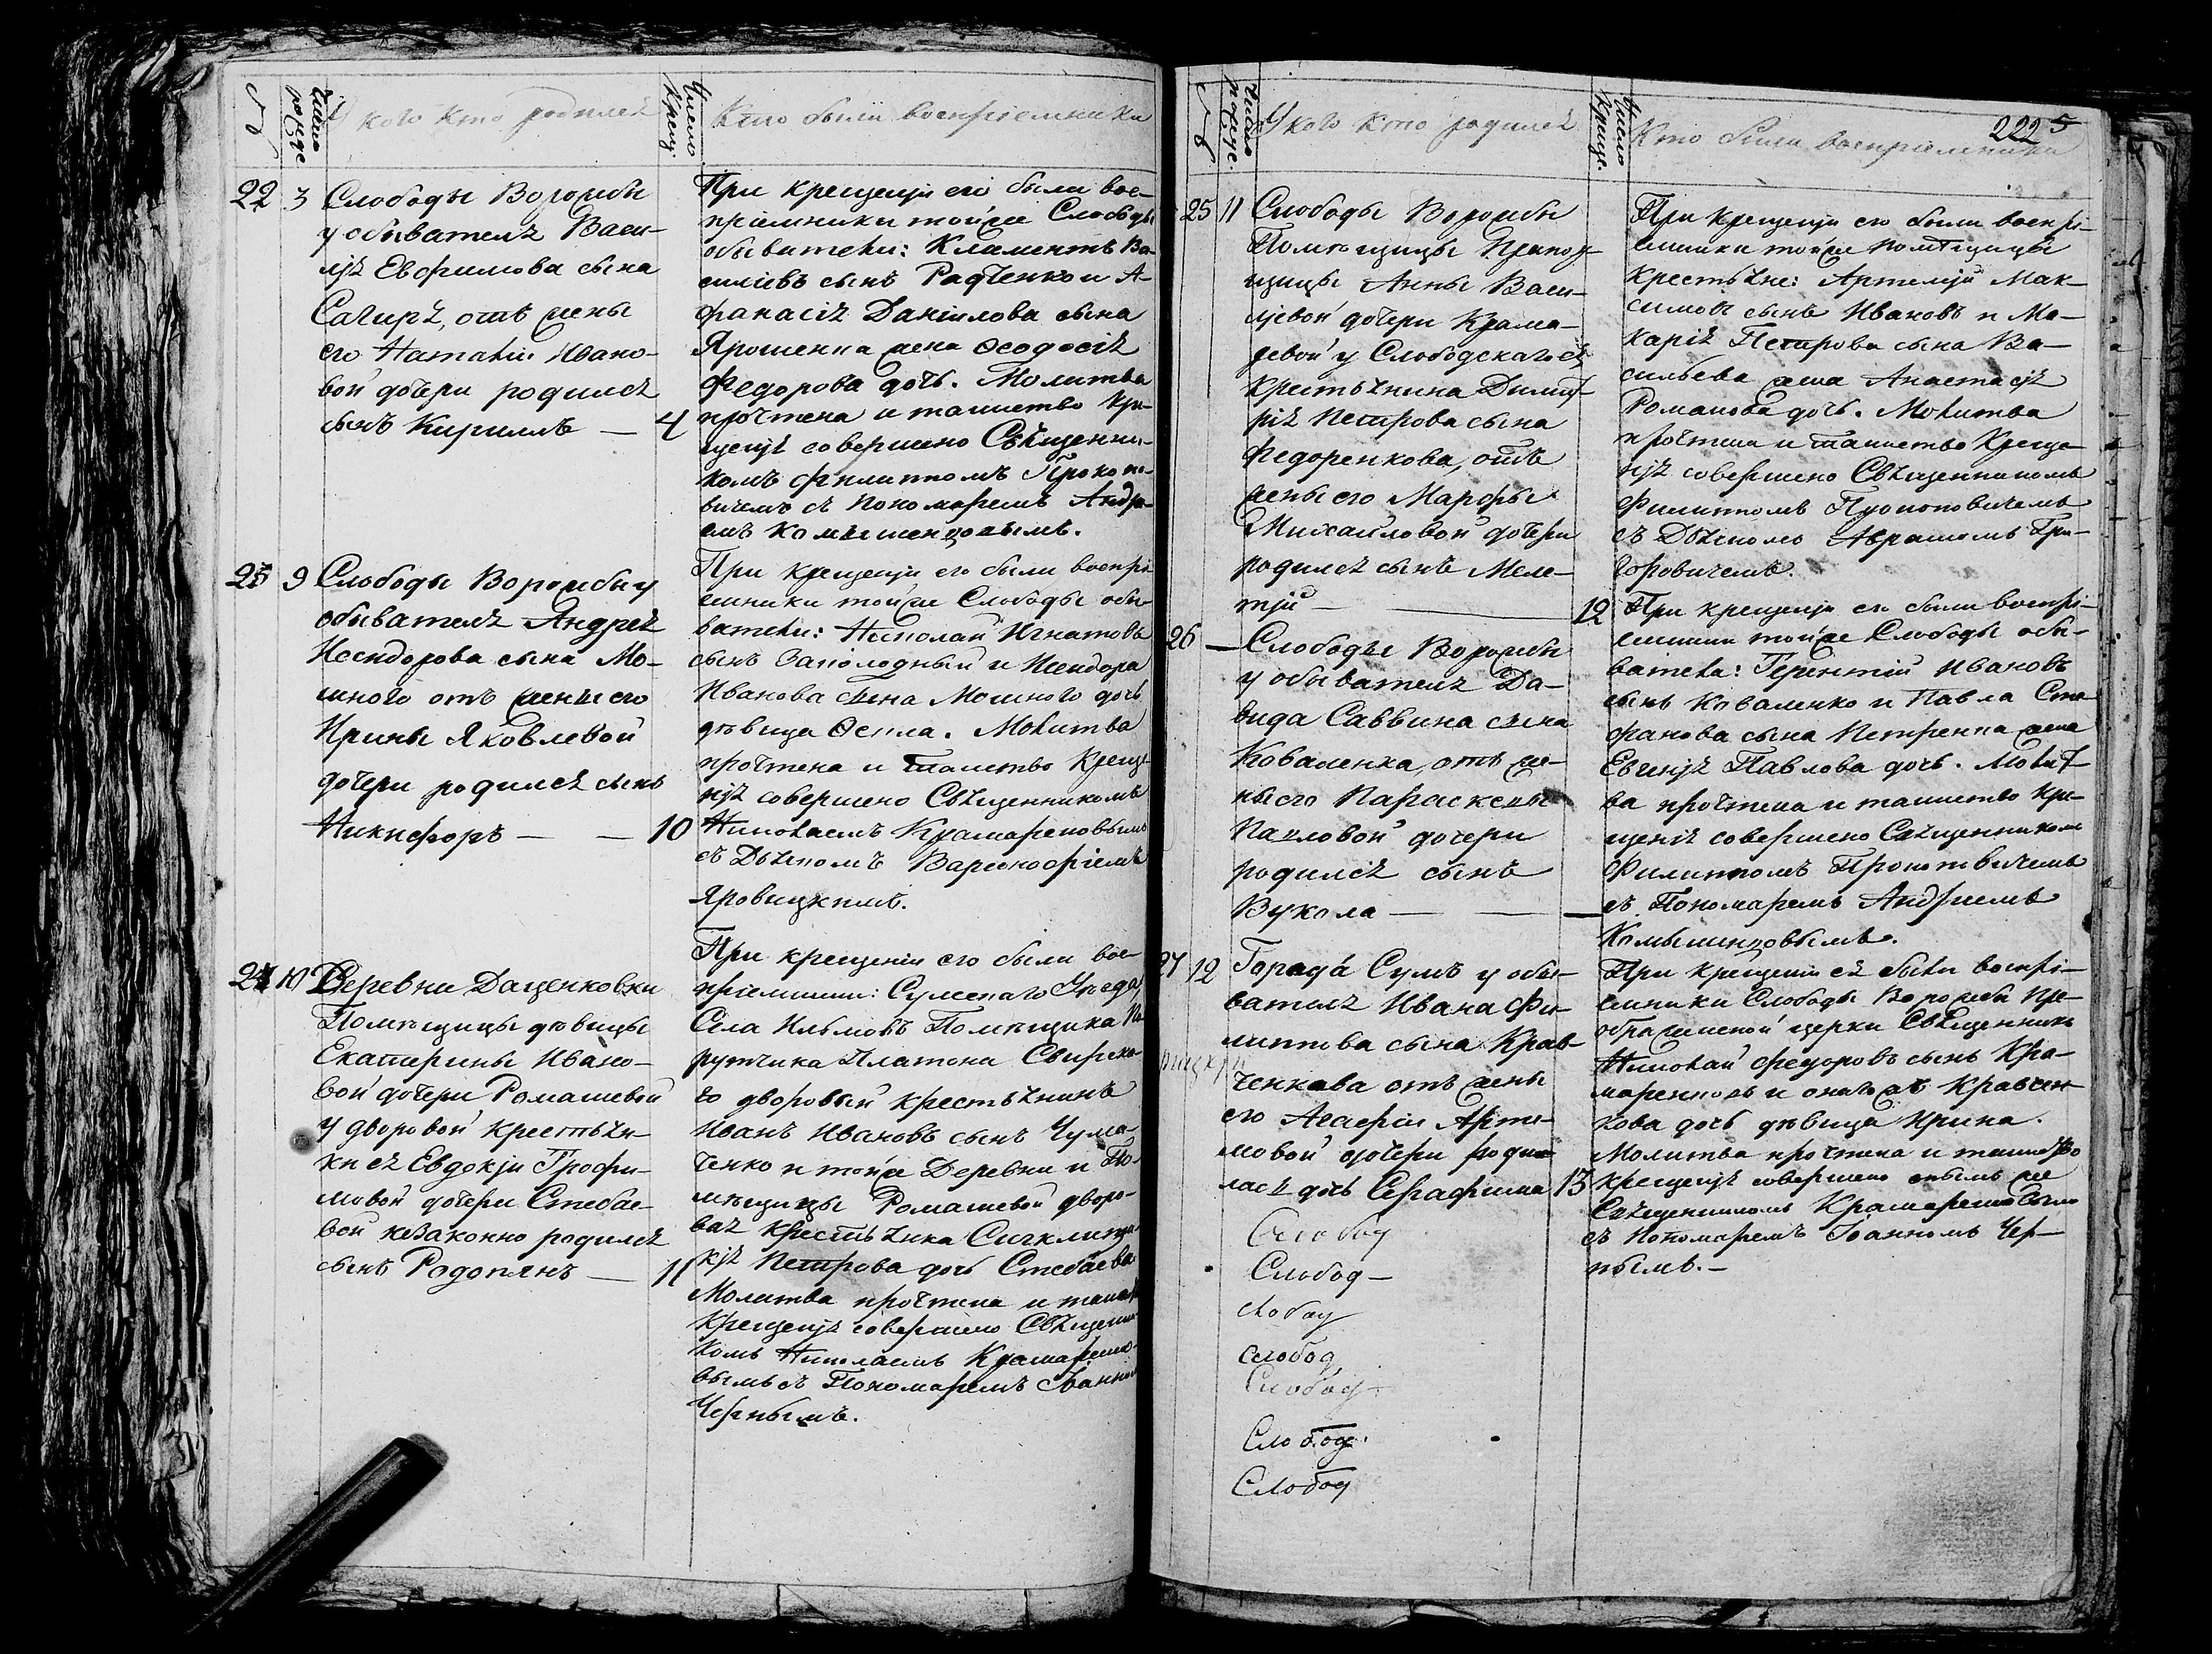 №
Число рожде
У кого кто родился
Число Крещ.
Кто были воспріемники
22 3
Слободы Ворожбы
у обывателя Васи-
лія Евфимова сына
Сагиря, отъ жены
его Наталіи Ивано-
вой дочери родился
сынъ Кириллъ — 4
При крещеніи его были вос-
пріемники тойже Слободы
обыватели: Климентъ Ва-
силіевъ сынъ Радченко и А-
фанасія Даніилова сына
Ярошенка жена Ѳеодосія
Федорова дочь. Молитва
прочтена и таинство Кре-
щенія совершено Священни-
комъ Филиппомъ Прокопо-
вичемъ съ Пономаремъ Андре-
емъ Комышенцовымъ.
23 9
Слободы Ворожбы у
обывателя Андрея
Исидорова сына Мо-
шного отъ жены его
Ирины Яковлевой
дочери родился сынъ
Никифоръ — — 10
При крещеніи его были воспрі
емники тойже Слободы обы-
ватели: Николай Игнатовъ
сынъ Захолодный и Исидора
Иванова сына Мошного дочь
дѣвица Ѳекла. Молитва
прочтена и таинство Креще
нія совершено Священникомъ
Николаемъ Крамареновымъ
съ Дьякомъ Варфоофіемъ
Яровицкимъ.
24 10
Деревни Даценковки
Помѣщицы дѣвицы
Екатерины Ивано-
вой дочери Ромашевой
у дворовой крестьян-
ки ея Евдокіи Трофи-
мовой дочери Стебае-
вой незаконно родился
сынъ Родопянъ — 11
При крещеніи его были вос-
пріемники: Сумскаго Уѣзда
Села Ильмовъ Помѣщика По
рутчика Платона Свирско-
го дворовый крестьянинъ
Иванъ Ивановъ сынъ Чума-
ченко и тойже Деревни и По-
мѣщицы Ромашевой дворо-
вая крестьянка Сигклити-
кія Петрова дочь Стебаева
Молитва прочтена и таинс
Крещенія совершено Священни
комъ Николаемъ Крамарено-
вымъ съ Пономаремъ Іоанном
Чернымъ.
222 5
№
Число рожде.
У кого кто родился
Число Креще.
Кто были воспріемники
25 11
Слободы Ворожбы
Помѣщицы Прапор-
щицы Анны Васи-
ліевой дочери Крама-
ревой у Слободскаго ея
Крестьянина Димит-
рія Петрова сына
Федоренкова, отъ
жены его Марфы
Михайловой дочери
родился сынъ Меле-
тій — 12
При крещеніи его были воспрі-
емники тойже помѣщицы
Крестьяне: Артемій Мак-
симовъ сынъ Ивановъ и Ма-
карія Петрова сына Ва-
сильева жена Анастасія
Романова дочь. Молитва
прочтена и таинство Креще
нія совершено Священникомъ
Филиппомъ Прокоповичемъ
съ Дьякомъ Аврамомъ Гри-
горовичемъ.
26 —
Слободы Ворожбы
у обывателя Да-
вида Саввина сына
Коваленка, отъ же-
ны его Параскевы
Павловой дочери
родился сынъ
Вукола — — —
При крещеніи его были воспрі-
емники тойже Слободы обы-
ватели: Терентій Ивановъ
сынъ Коваленко и Павла Сте
фанова сына Петренка жена
Евгенія Павлова дочь. Молит
ва прочтена и таинство Кре-
щенія совершено Священникомъ
Филиппомъ Прокоповичемъ
съ Пономаремъ Андреемъ
Комышенцовымъ.
27 12
Города Сумъ у обы-
вателя Ивана Фи-
липпова сына Крав-
ченкова отъ жены
его Агафіи Арте-
мовой дочери роди
лась дочь Серафима 13
При крещеніи ея были воспрі-
емники Слободы Ворожбы Пре-
ображенской церкви Священникъ
Николай Федоровъ сынъ Кра-
маренковъ и онагожъ Кравчен-
кова дочь дѣвица Ирина.
Молитва прочтена и таинство
крещенія совершено онымъ же
Священникомъ Крамареновымъ
съ Пономаремъ Іоанномъ Чер-
нымъ. —
Слобод
Слобод —
слобод
слобод
Слобод
Слобод.
Слобод